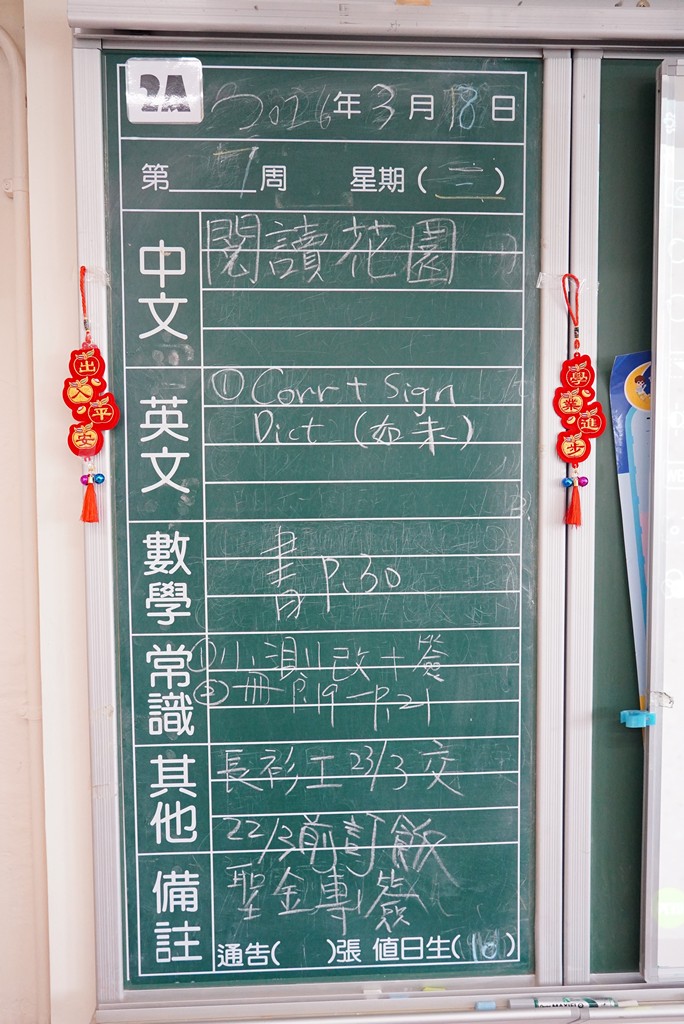 2A
2026年3月18日
第 周 星期(三)
中文
閱讀花園
英文
① Corr + Sign
Dict (如未)
數學
書 P.30
常識
①小測改+簽
②冊 P.19-P.21
其他
長衫工 23/3 交
22/3前訂飯
備註
聖金專簽
通告( )張 值日生(18)
出入平安
學業進步